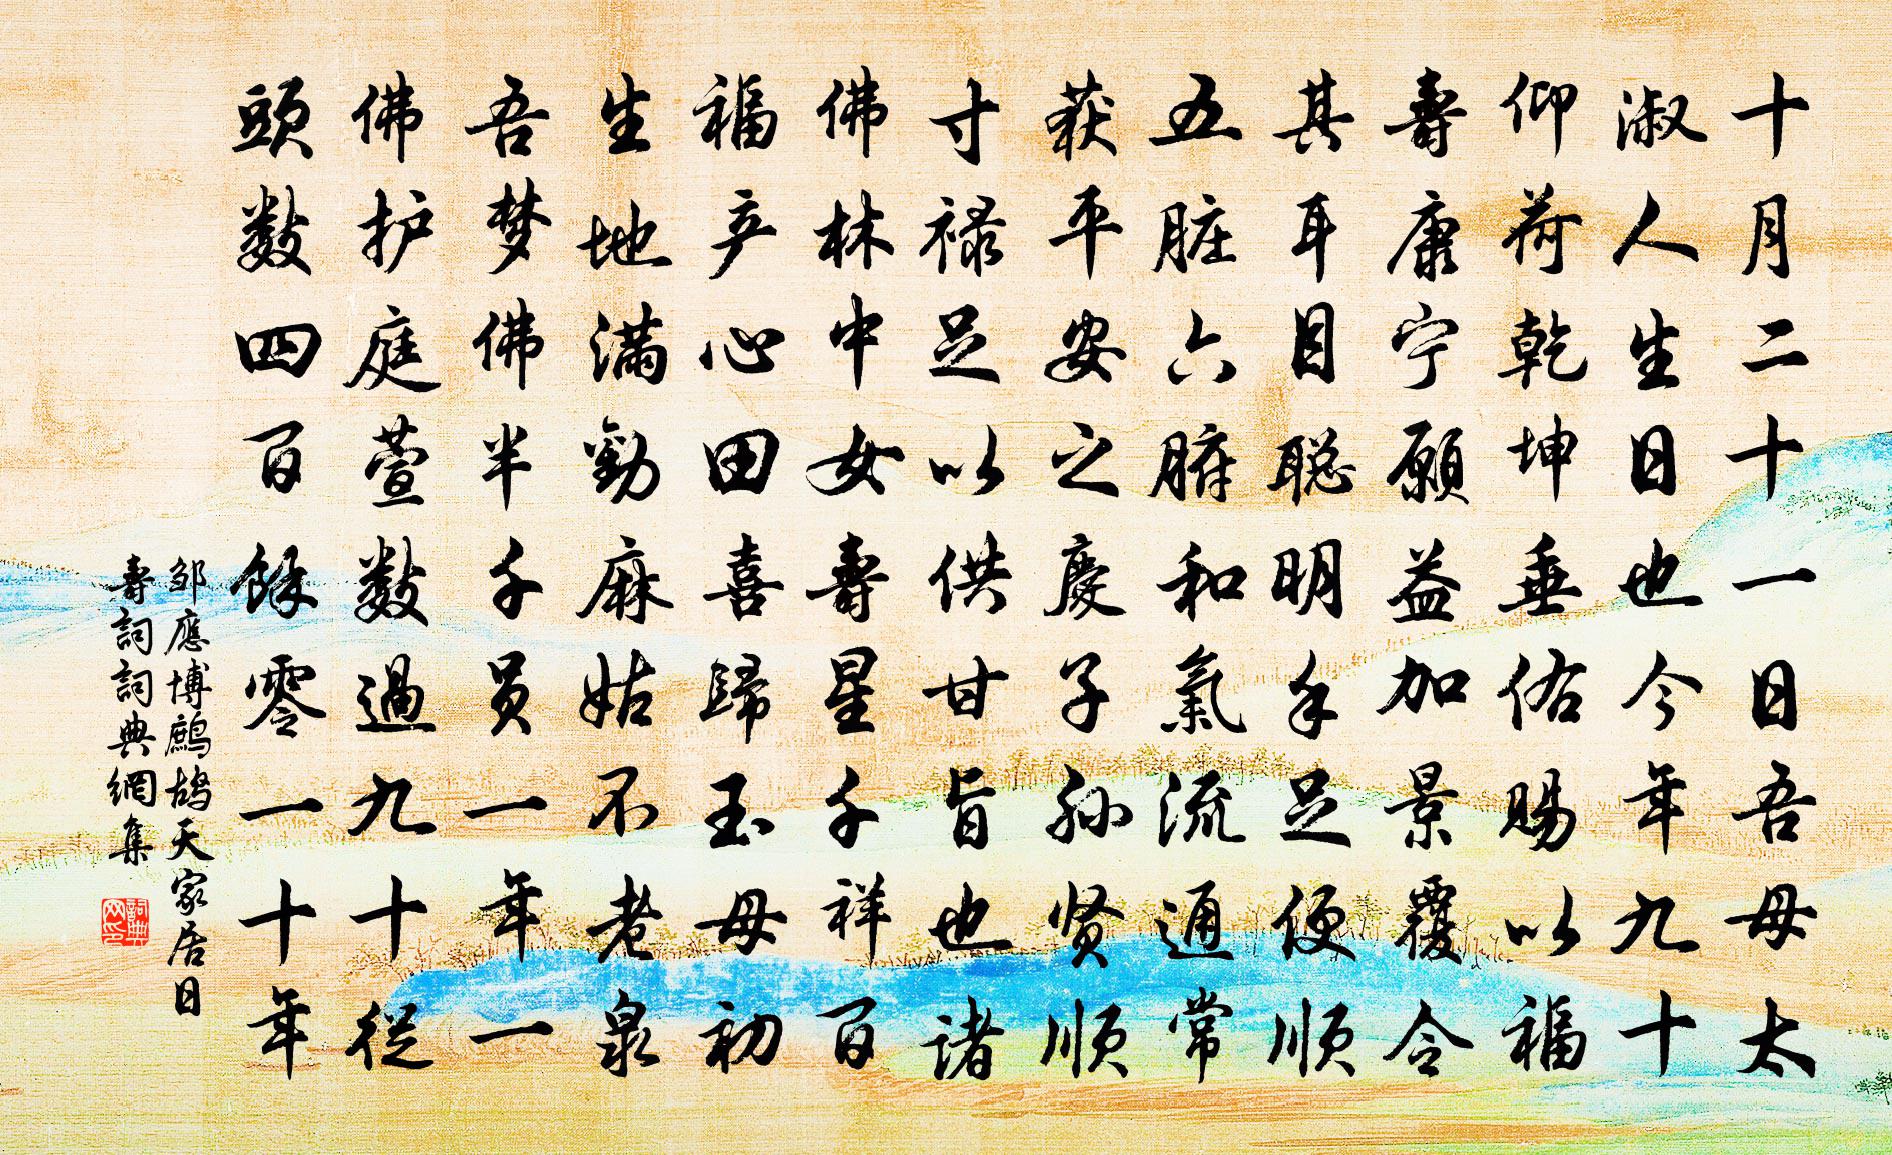 十月二十一日吾母太
淑人生日也今年九十
仰荷乾坤垂佑赐以福
壽康宁願益加景覆令
其耳目聪明手足便顺
五脏六腑和氣流通常
获平安之慶子孙贤顺
寸禄足以供甘旨也诸
佛林中女壽星千祥百
福产心田喜歸玉母初
生地满勸麻姑不老泉
吾梦佛半千员一年一
佛护庭萱数過九十從
頭数四百餘零一十年
邹應博鷓鴣天家居日
壽詞詞典網集
詞典网印